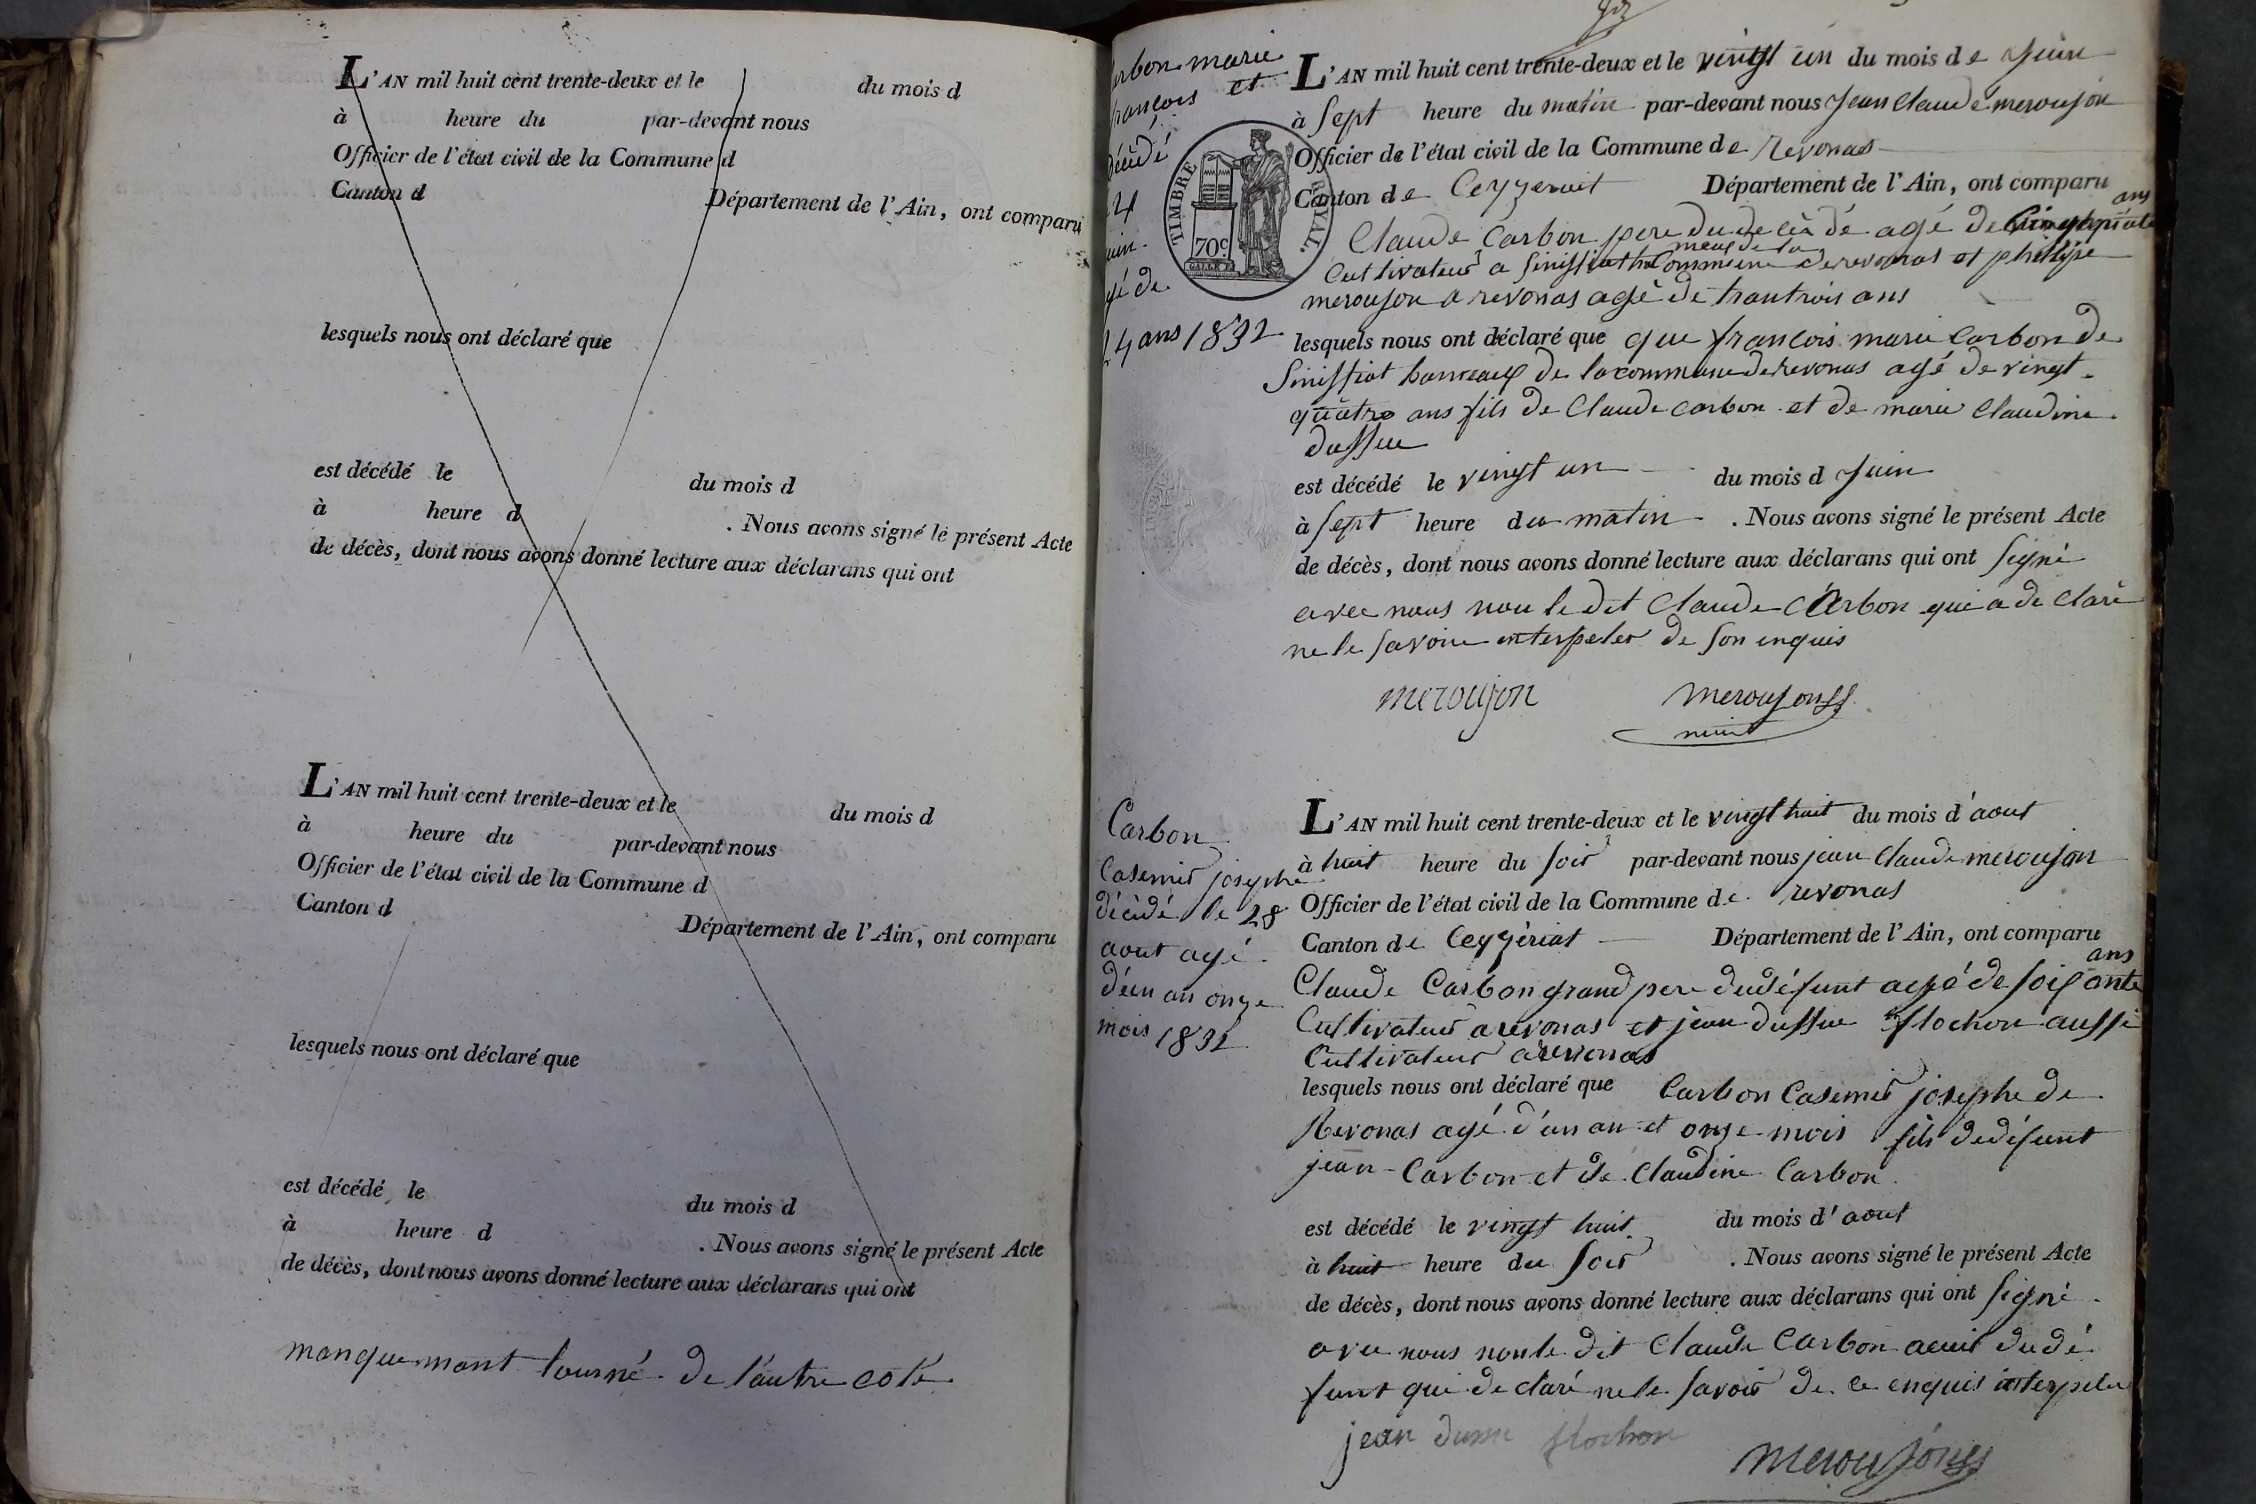 L'AN mil huit cent trente-deux et le du mois d
à heure du par-devant nous
Officier de l'état civil de la Commune d
Canton d Département de l'Ain, ont comparu
lesquels nous ont déclaré que
est décédé le du mois d
à heure d . Nous avons signé le présent Acte
de décès, dont nous avons donné lecture aux déclarans qui ont
L'AN mil huit cent trente-deux et le du mois d
à heure du par-devant nous
Officier de l'état civil de la Commune d
Canton d Département de l'Ain, ont comparu
lesquels nous ont déclaré que
est décédé le du mois d
à heure d . Nous avons signé le présent Acte
de décès, dont nous avons donné lecture aux déclarans qui ont
manquemant tourné de l'autre coté
marie
et
ans 1832
TIMBRE ROYAL.
70c.
L'AN mil huit cent trente-deux et le vingt un du mois de Juin
à Sept heure du matin par-devant nous Jean Claude meroujon
Officier de l'état civil de la Commune de revonas
Canton de Département de l'Ain, ont comparu
ans
Claude Carbon pere du decédé agé de
Cultivateur a Sinissiat de revonas et philipe
meroujon a revonas agé de trantrois ans
lesquels nous ont déclaré que que francois marie Carbon de
Sinissiat hameaux de la commune de revonas agé de vingt
quatre ans fils de Claude carbon et de marie Claudine
dussue
est décédé le vingt un du mois d Juin
à Sept heure du matin . Nous avons signé le présent Acte
de décès, dont nous avons donné lecture aux déclarans qui ont Signé
avec nous non le dit Claude Carbon qui a declaré
ne le savoir interpeler de son enquis
meroujon meroujon
Carbon
Casemir josephe
décédé le 28
aout agé
d'un an onze
mois 1832
L'AN mil huit cent trente-deux et le vingt huit du mois d'aout
à huit heure du soir par-devant nous jean Claude meroujon
Officier de l'état civil de la Commune de revonas
Canton de Ceyzériat Département de l'Ain, ont comparu
ans
Claude Carbon grand pere du défunt agé de soixante
Cultivateur a revonas et jean dussue flochon aussi
Cultivateur a revonas
lesquels nous ont déclaré que Carbon Casemir josephe de
Revonas agé d'un an et onze mois fils de défunt
jean Carbon et de Claudine Carbon
est décédé le vingt huit du mois d'aout
à huit heure du soir . Nous avons signé le présent Acte
de décès, dont nous avons donné lecture aux déclarans qui ont signé
avec nous non le dit Claude Carbon du dé
funt qui declaré ne le savoir de ce enquis interpelé
jean dussue flochon
meroujon